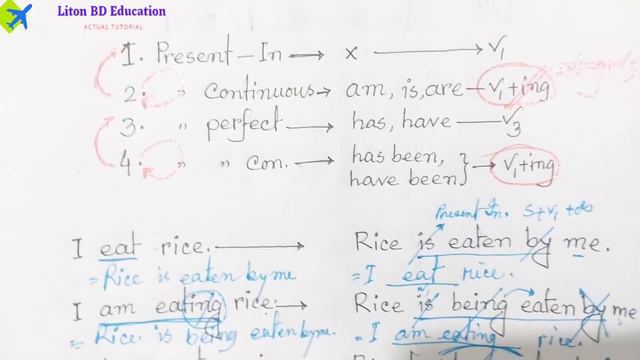 Liton BD Education
ACTUAL TUTORIAL
1. Present-In → x → V1
2. " Continuous → am, is, are - V1+ing
3. " perfect → has, have - V3
4. " " Con. → has been, have been } → V1+ing
Present In. S+V1+
I eat rice. → Rice is eaten by me.
= Rice is eaten by me = I eat rice.
I am eating rice. → Rice is being eaten by me
= Rice is being eaten by me. = I am eating rice.